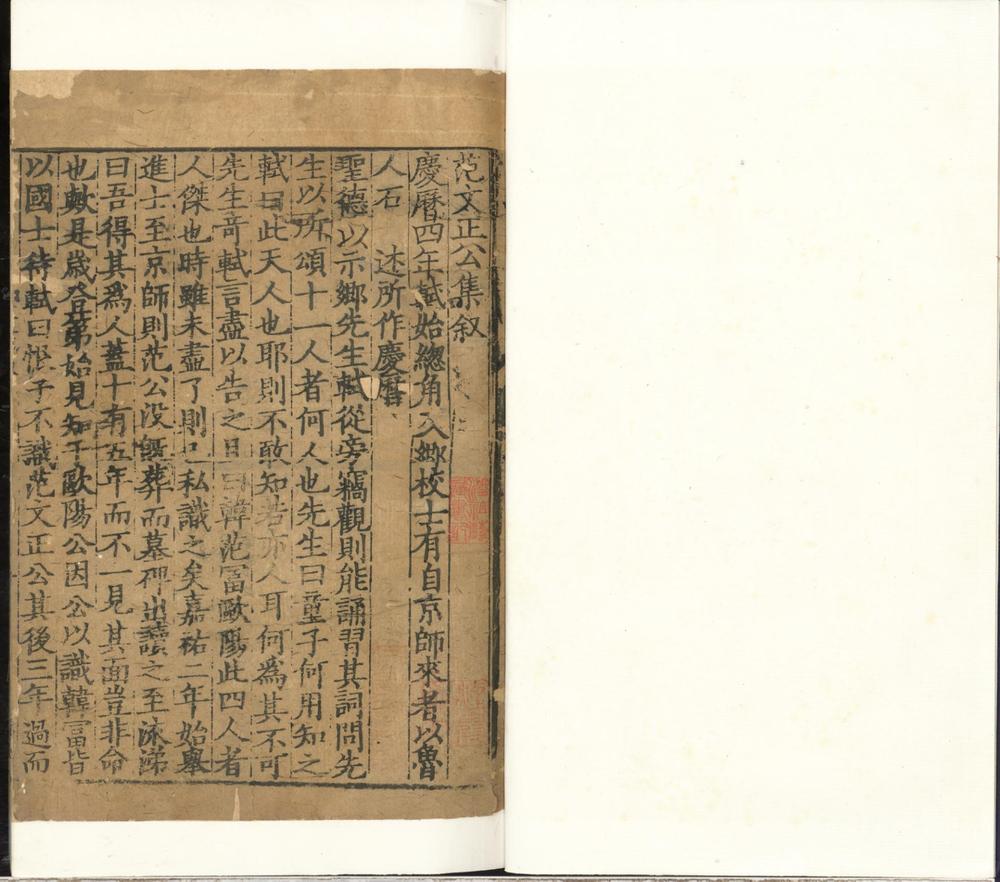 范文正公集叙
慶曆四年軾始總角入鄉校士有自京師來者以魯
人石 述所作慶曆
聖德以示鄉先生軾從旁竊觀則能誦習其詞問先
生以所頌十一人者何人也先生曰童子何用知之
軾曰此天人也耶則不敢知若亦人耳何爲其不可
先生竒軾言盡以告之且曰韓范冨歐陽此四人者
人傑也時雖未盡了則已私識之矣嘉祐二年始舉
進士至京師則范公没旣葬而墓碑出讀之至泳涕
曰吾得其爲人蓋十有五年而不一見其面豈非命
也歟是歲登第始見知于歐陽公因公以識韓富皆
以國士待軾曰恨子不識范文正公其後三年過而